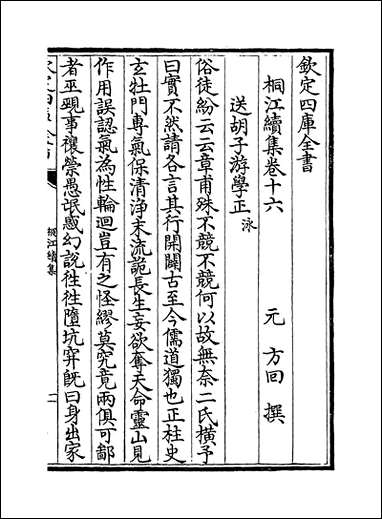 欽定四庫全書
桐江續集卷十六
元 方回 撰
送胡子游學正泳
俗徒紛云云章甫殊不競不競何以故無奈二氏橫予
曰實不然請各言其行開闢古至今儒道獨也正柱史
玄牡門專氣保清淨末流詭長生妄欲奪天命靈山見
作用誤認氣為性輪迴豈有之怪繆莫究竟兩俱可鄙
者巫覡事禳禜愚氓惑幻說徃徃墮坑穽既曰身出家
桐江續集